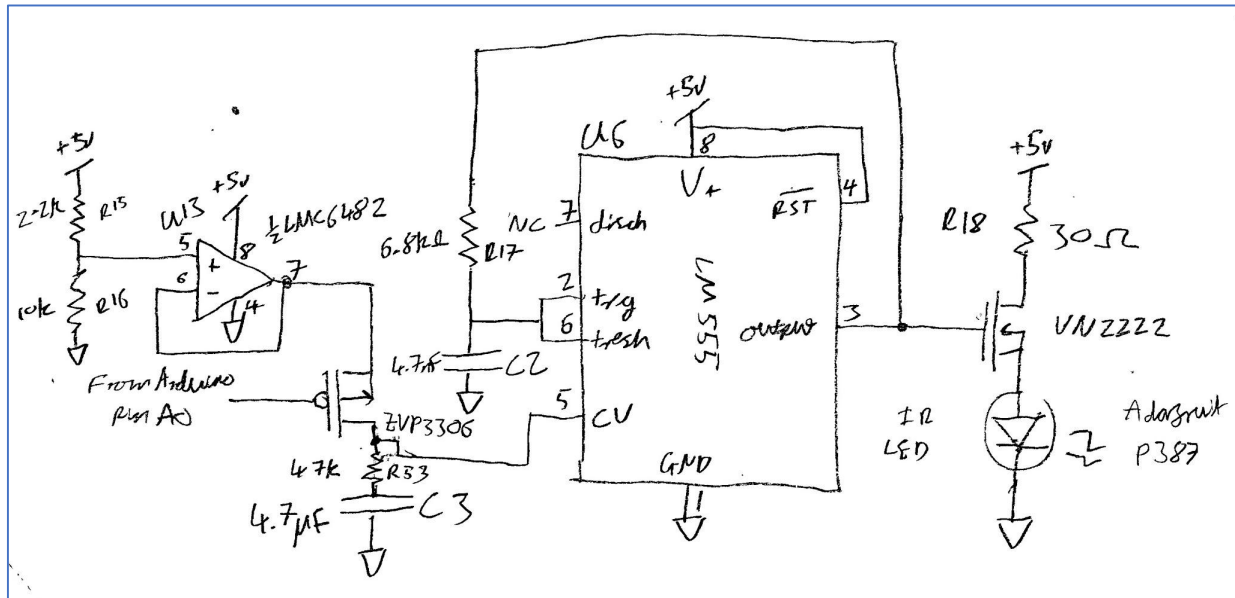 +5V
2.2k
R15
10k
R16
U13
+5V
½LMC6482
5
6
8
7
4
+
-
From Arduino
Pin A0
ZVP3306
47k
R33
4.7µF
C3
6.8kΩ
R17
4.7nF
C2
U6
+5V
8
V+
4
RST
NC
7
disch
2
trg
6
tresh
5
CV
LM555
output
3
GND
1
+5V
R18
30Ω
VN2222
IR
LED
Adafruit
P387